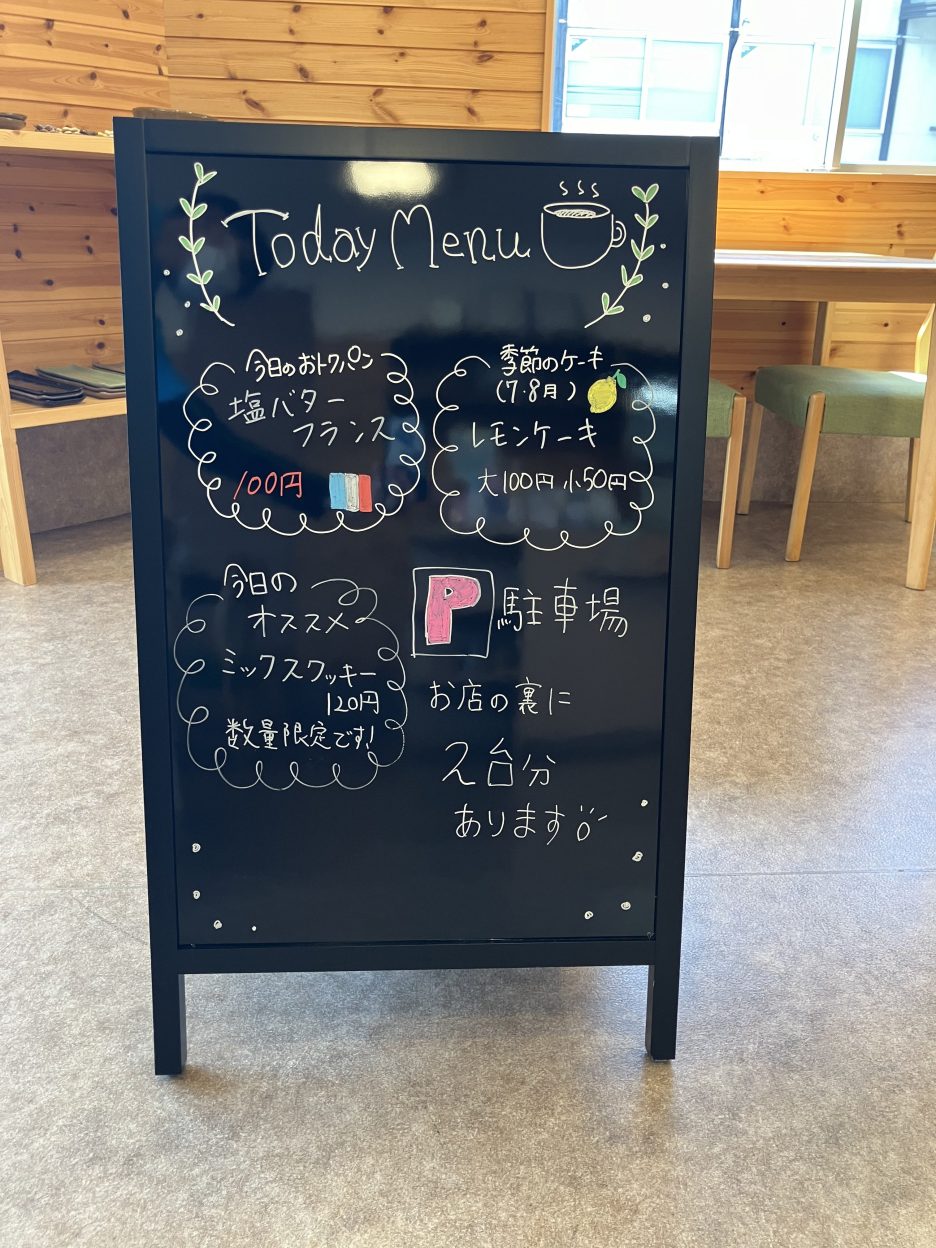 Today Menu
今日のおトクパン
塩バター
フランス
100円
季節のケーキ
(7・8月)
レモンケーキ
大100円 小50円
今日の
オススメ
ミックスクッキー
120円
数量限定です!
P 駐車場
お店の裏に
2台分
あります